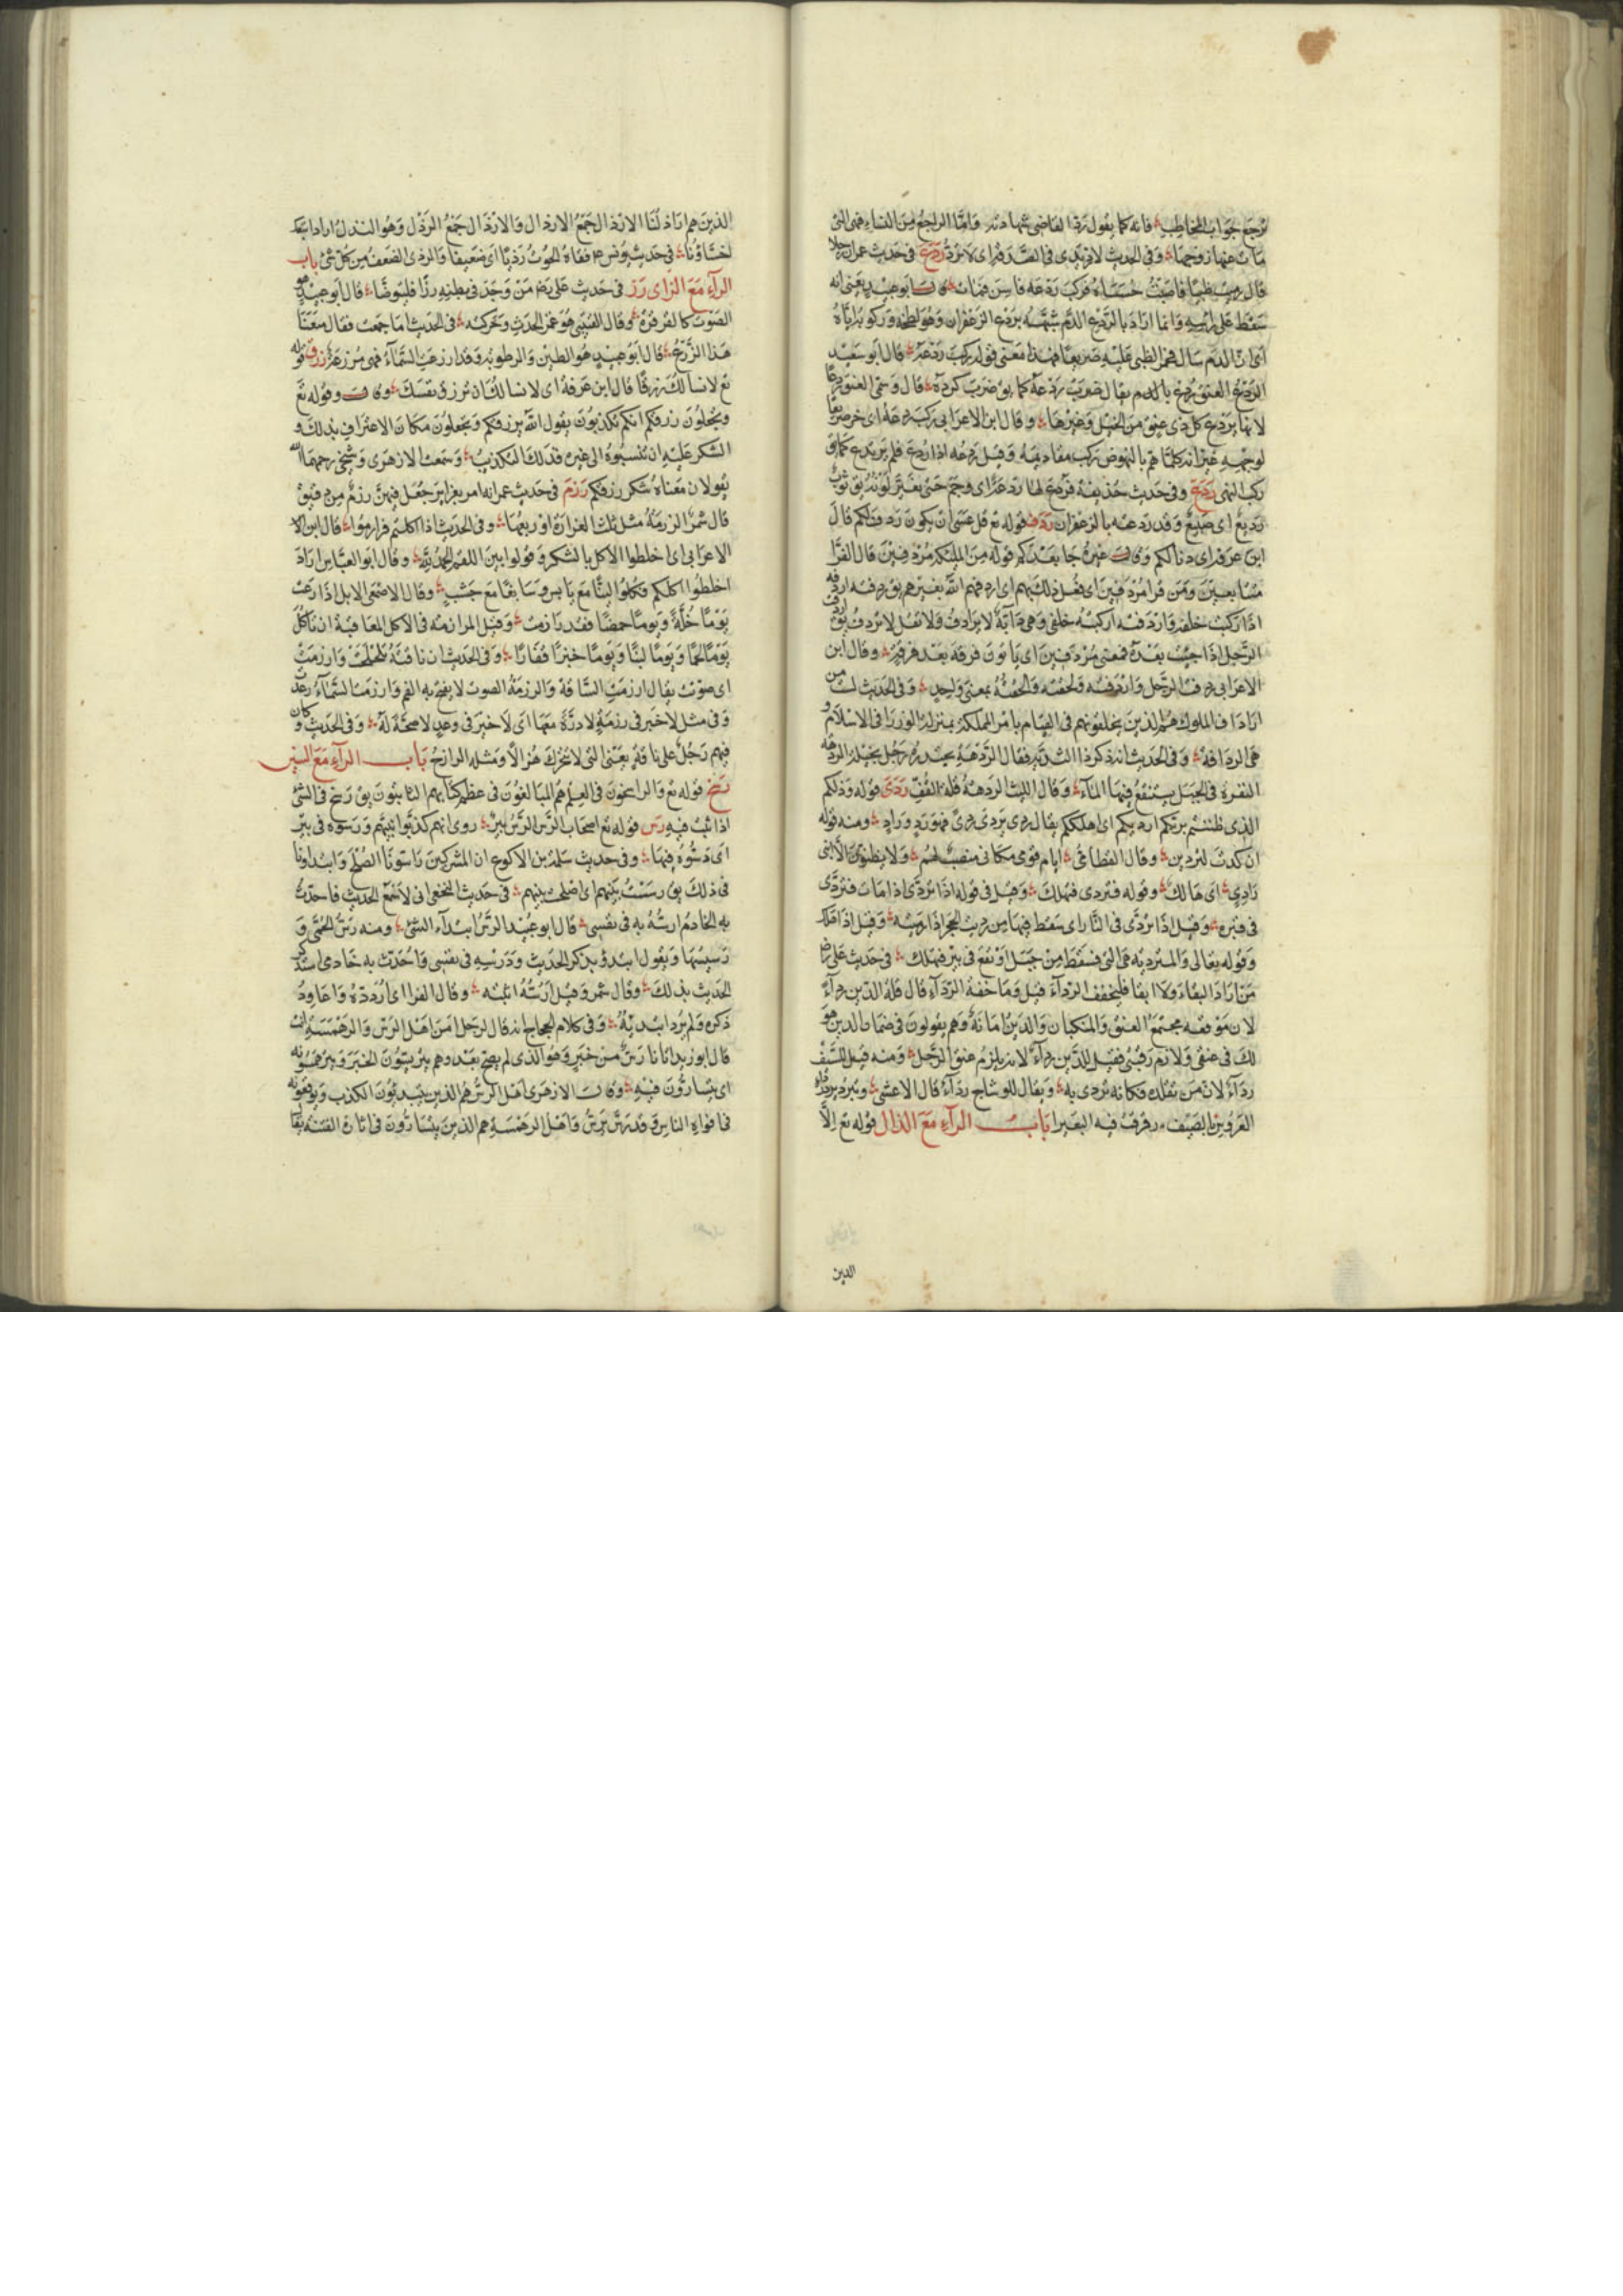 ترجع جواب المخاطب فانه كما يقول رد القاضى شهادته وامّا الراجع من النساء فهى التى
مات عنها زوجها وفى الحديث لا تردى فى الصدقة اى لا ترد ردع فى حديث عمر ان رجلا
قال رميت ظبيا فاصبت خششاءه فركب ردعه فاسن فمات قال ابو عبيد يعنى انه
سقط على راسه وانما اراد بالردع الدم شبّهه بردع الزعفران وهو لطخه وركوبه اياه
اى ان الدم سال فخر الظبى عليه صريعا فهذا معنى قوله ركب ردعه قال ابو سعيد
الردع العنق ردع بالدم يقال ضرب ردعه كما يق ضرب كرده قال وسمى العنق ردعا
لانها يرتدع كل ذى عنق من الخيل وغيرها وقال ابن الاعرابى ركب ردعه اى خر صريعا
لوجهه غير انه كلما هم بالنهوض ركب مقاديمه وقيل ردعه اذا ردع فلم يرتدع كما يق
ركب النهى ردع وفى حديث حذيفة فردع لها ردعة اى وجم حتى تغير لونه يق ثوب
رديع اى صبيغ وقد ردعته بالزعفران ردف قوله تع قل عسى ان يكون ردف لكم قال
ابن عرفة اى دنا لكم وقال غيره جا بعدكم قوله من الملئكة مردفين قال الفرّا
متتابعين ومن قرا مردفين اى فعل ذلك بهم اى اردفهم الله بغيرهم يق ردفته اردفه
اذا ركبت خلفه واردفته اركبته خلفى وهى دابة لا ترادف ولا تقل لا تردف يق اردفت
الرجل اذا جئت بعده فمعنى مردفين اى ياتون فرقة بعد فرقة وقال ابن
الاعرابى ردفت الرجل واردفته ولحقته والحقته بمعنى واحد وفى الحديث لست من
ارداف الملوك هم الذين يخلفونهم فى القيام بامر المملكة بمنزلة الوزرا فى الاسلام و
هى الردافة وفى الحديث انه ذكر ذا الثدية فقال الردهة يحدره رجل بجيلة الردهه
النقرة فى الجبل يستنقع فيها المآء وقال الليث الردهة قلة القف ردى قوله وذلكم
الذى ظننتم بربكم ارديكم اى اهلككم يقال ردى يردى ردى فهو رد وراد ومنه قوله
ان كدت لتردين وقال القطامى ايام قومى مكانى منصب لهم ولا يظنون الا اننى
رادى اى هالك وقوله فتردى فتهلك وقيل فى قوله اذا تردى اذا مات فتردى
فى قبره وقيل اذا تردى فى النار اى سقط فيها من رديت الحجر اذا رميته وقيل اذا هلك
وقوله تعالى والمتردية هى التى فتسقط من جبل او تقع فى بئر فتهلك فى حديث على رض
من اراد البقاء ولا بقا فليخفف الردآء قيل وما خفة الردآء قال قلة الدين ردآء
لان موقعه مجتمع العنق والمنكبان والدين امانة وهم يقولون فى ضمان الدين هو
لك فى عنقى ولازم رقبتى فقيل للدين ردآء لانه يلزم عنق الرجل ومنه قيل للسيف
ردآء لان من تقلده فكانه تردى به ويقال للوشاح ردآء قال الاعشى وتبرد برد رداء
العروس بالصيف رقرقت فيه العبيرا باب الرآء مع الذال قوله تع الّا
الدين
الذين هم اراذلنا الاراذل جمع الارذال والارذال جمع الرذل وهو النذل اراد اتبعك
اخسّاؤنا فى حديث يونس ع فقاه الحوت رذيّا اى ضعيفا والرذى الضعيف من كل شئ باب
الرآء مع الزاى رزز فى حديث على رض من وجد فى بطنه رزّا فليتوضّا قال ابو عبيد هو
الصوت كالقرقرة وقال القتيبى هو غمز الحدث وحركته فى الحديث اما جمعت فقال منعنا
هذا الرزغ قال ابو عبيد هو الطين والرطوبة وقد ارزغت السّماء فهى مرزغة رزق قوله
تع لا نسالك رزقا قال ابن عرفة اى لا نسالك ان ترزق نفسك وقال وقوله تع
وتجعلون رزقكم انكم تكذبون يقول الله يرزقكم وتجعلون مكان الاعتراف بذلك و
الشكر عليه ان تنسبوه الى غيره فذلك التكذيب وسمعت الازهرى وشيخى رحمهما الله
يقولان معناه شكر رزقكم رزم فى حديث عمر انه امر بغراير جعل فيهن رزم من دقيق
قال شمر الرزمة مثل ثلث الغرارة او ربعها وفى الحديث اذا اكلتم فرازموا قال ابن الا
الاعرابى اى اخلطوا الاكل بالشكر وقولوا بين اللقم الحمد لله وقال ابو العباس اراد
اخلطوا اكلكم فكلوا لينا مع يابس وسايغا مع جشب وقال الاصمعى الابل اذا رعت
يوما خلّة ويوما حمضا فقد رازمت وقيل المرازمة فى الاكل المعاقبة ان تاكل
يوما لحما ويوما لبنا ويوما خبزا قفارا وفى الحديث ان ناقته تلحلحت وارزمت
اى صوتت يقال ارزمت الناقة والرزمة الصوت لا يفتح به الفم وارزمت السّماء رعدت
وفى مثل لا خير فى رزمة لا درة معها اى لا خير فى وعد لا صحة له وفى الحديث وكان
فيهم رجل على ناقة يعنى التى لا تتحرك هزالا ومثله الرازح باب الرآء مع السين
رسخ قوله تع والراسخون فى العلم هم المبالغون فى علم كتابهم الثابتون يق رسخ فى الشئ
اذا ثبت فيه رس قوله تع اصحاب الرس الرس بئر روى انهم كذبوا نبيهم ورسوه فى بئر
اى دسّوه فيها وفى حديث سلمة بن الاكوع ان المشركين راسونا الصلح وابتداونا
فى ذلك يق رسست بينهم اى اصلحت بينهم فى حديث النخعى انى لاسمع الحديث فاحدّث
به الخادم ارسّه به فى نفسى قال ابو عبيد الرس ابتدآء الشئ ومنه رسّ الحمّى و
رسيسها ويقول ابتدؤ بذكر الحديث ودرسه فى نفسى واحدّث به خادمى استذكر
الحديث بذلك وقال شمر وقيل ارسّه اثبته وقال الفرا اى اردده واعاود
ذكره ولم يرد ابتدئه وفى كلام الحجاج انه قال لرجل امن اهل الرس والرهمسة انت
قال ابو زيد اتانا رس من خبر وهو الذى لم يصح بعد وهم يترسّون الخبر ويرهمسونه
اى يتسارّون فيه وقال الازهرى اهل الرس هم الذين يبتدئون الكذب ويوقعونه
فى افواه الناس وقد رس يرس واهل الرهمسة هم الذين يتسارّون فى اثارة الفتنة يقا